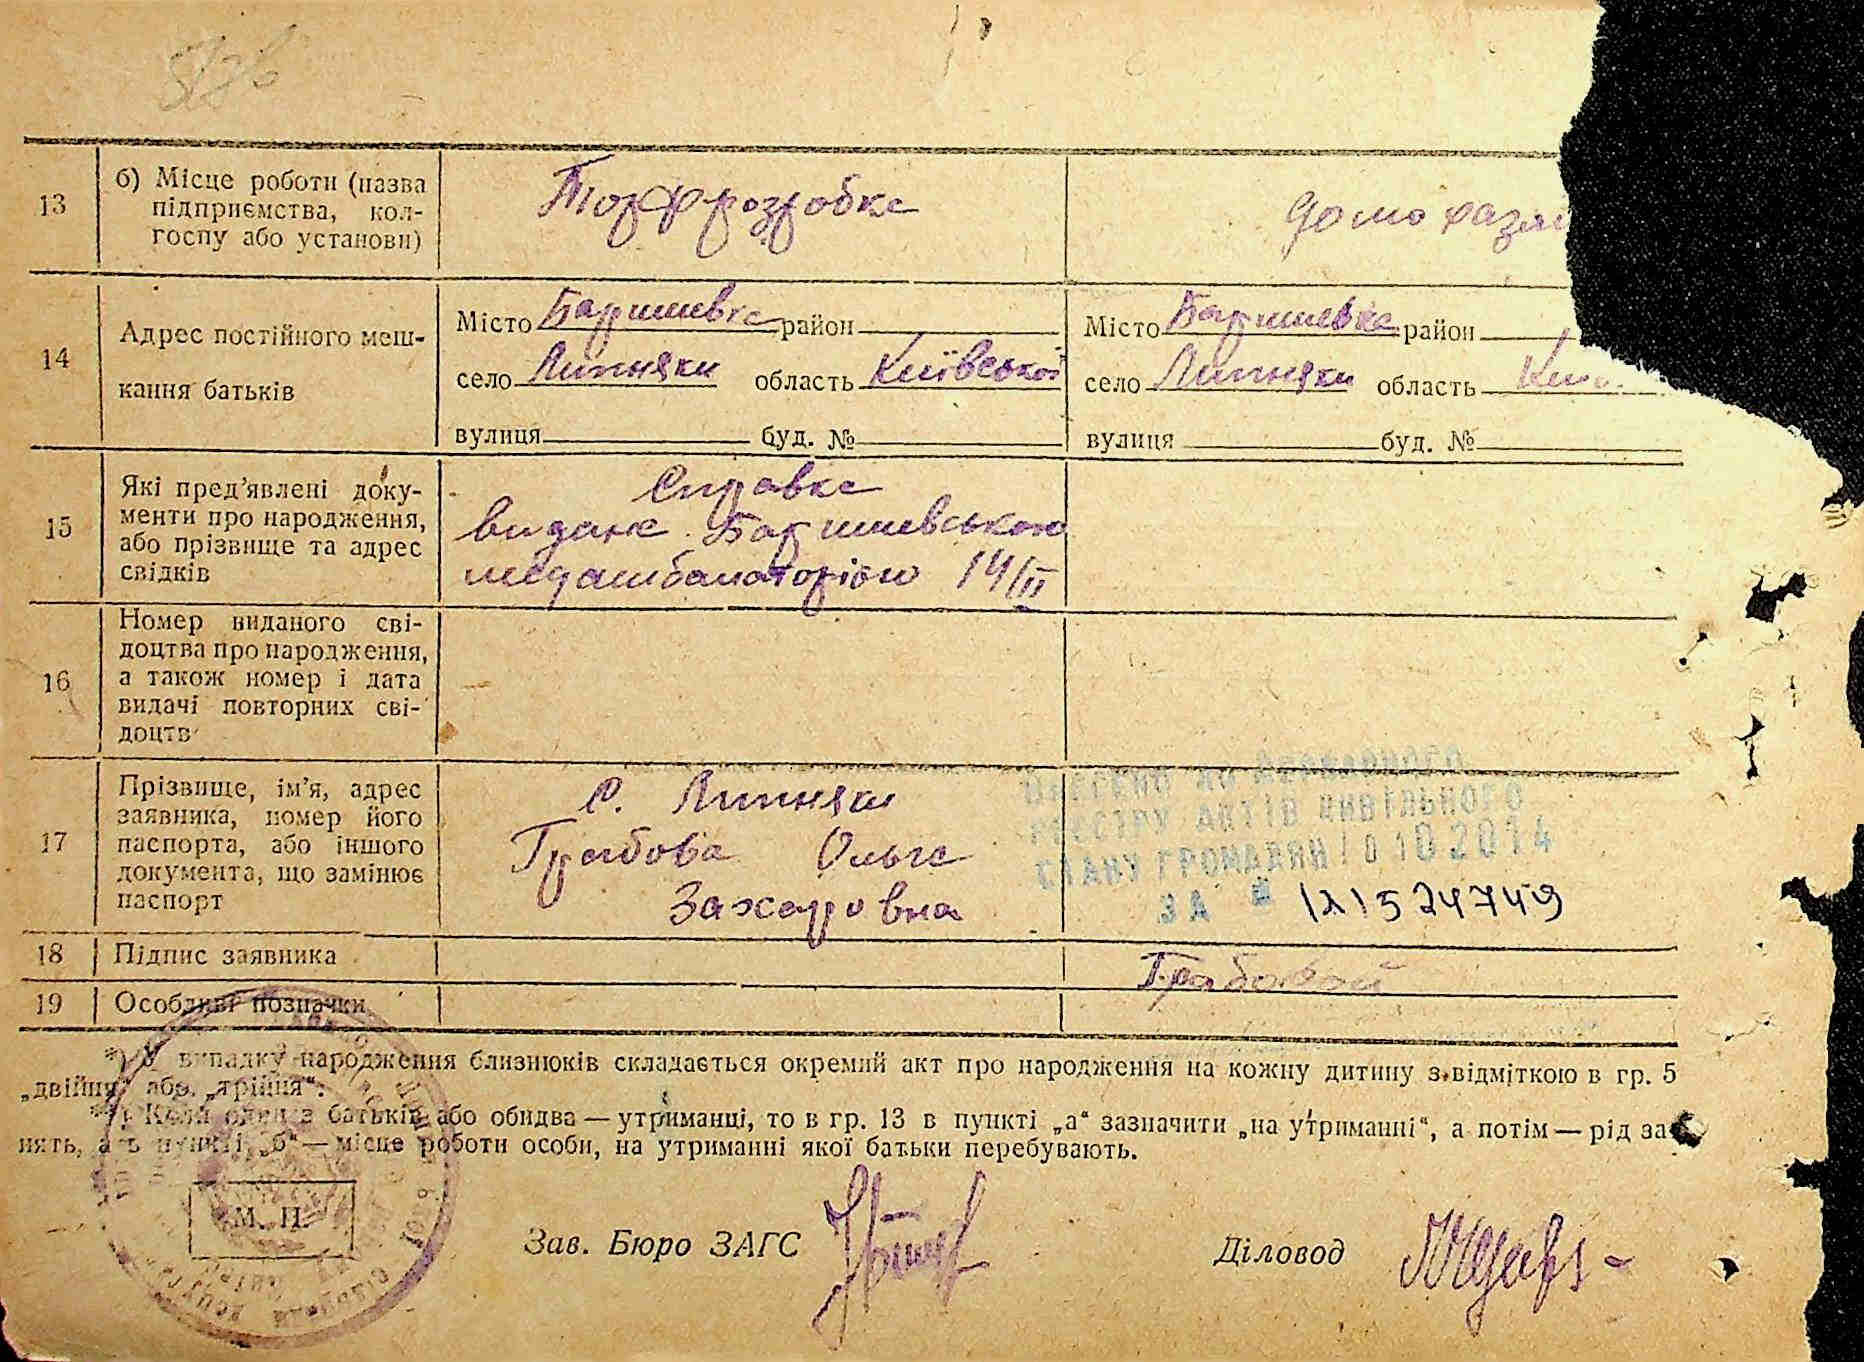 5/26
13
б) Місце роботи (назва
підприємства, кол-
госпу або установи)
Торфрозробка
домохазяй
14
Адрес постійного меш-
кання батьків
Місто Баришевка район
село Липняки область Київської
вулиця буд. №
Місто Баришевка район
село Липняки область Киї
вулиця буд. №
15
Які пред'явлені доку-
менти про народження,
або прізвище та адрес
свідків
Справка
видана Баришевською
медамбалаторією 14/II
16
Номер виданого сві-
доцтва про народження,
а також номер і дата
видачі повторних сві-
доцтв
17
Прізвище, ім'я, адрес
заявника, номер його
паспорта, або іншого
документа, що замінює
паспорт
С. Липняки
Грабова Ольга
Захаровна
ВНЕСЕНО ДО ДЕРЖАВНОГО
РЕЄСТРУ АКТІВ ЦИВІЛЬНОГО
СТАНУ ГРОМАДЯН 10 10 2014
ЗА № 121524749
18 Підпис заявника
Грабовой
19 Особливі позначки
*) У випадку народження близнюків складається окремий акт про народження на кожну дитину з відміткою в гр. 5
„двійня" або „трійня".
**) Коли один з батьків або обидва — утриманці, то в гр. 13 в пункті „а" зазначити „на утриманні", а потім — рід за-
нять, а в пункті „б" — місце роботи особи, на утриманні якої батьки перебувають.
М. П.
Зав. Бюро ЗАГС
Діловод